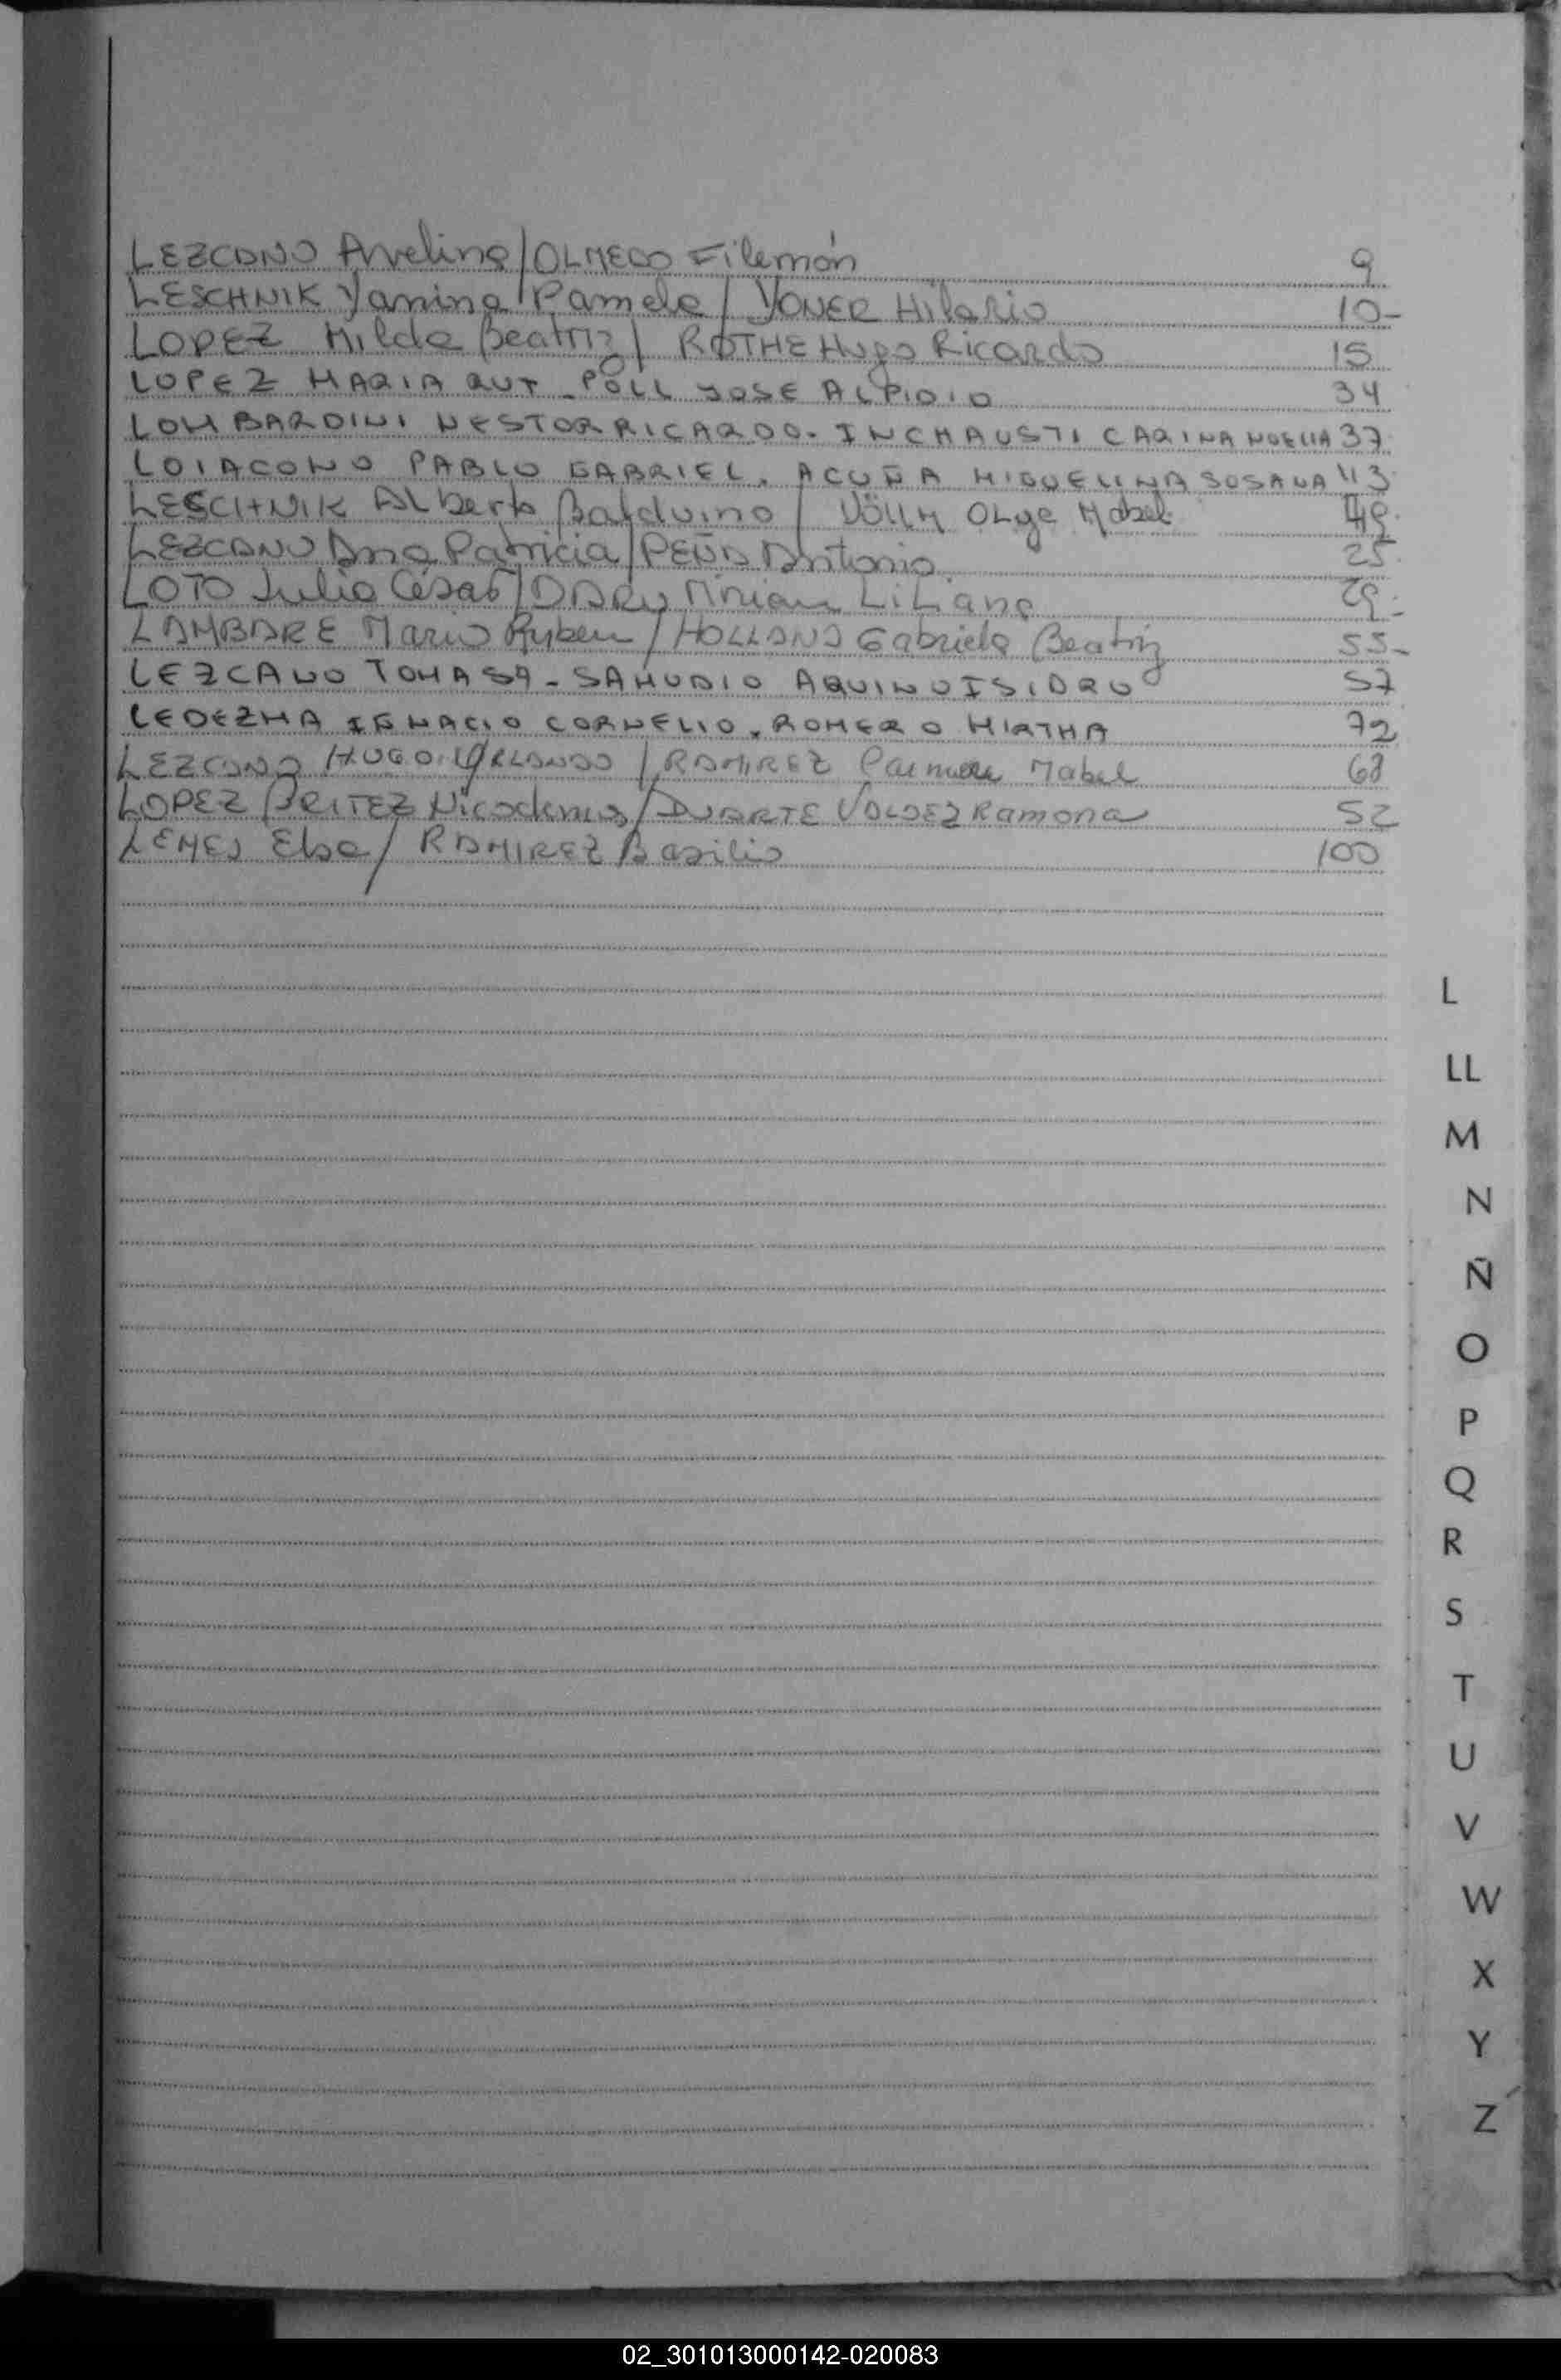 LEZCANO Avelina/OLMEDO Filemón 9
LESCHNIK Yanina Pamela / YONER Hilario 10-
LOPEZ Hilda Beatriz / ROTHE Hugo Ricardo 15
LOPEZ MARIA RUT - POLL JOSE ALPIDIO 34
LOMBARDINI NESTOR RICARDO. INCHAUSTI CARINA NOELIA 37
LOIACONO PABLO GABRIEL. ACUÑA MIGUELINA SUSANA 43
LESCHNIK Alberto Balduino / VÖLLM Olga Mabel 49.
LEZCANO Ana Patricia/PEÑA Antonio 25
LOTO Julio César/ Mirian Liliana 29-
LAMBARE Mario Ruben / HOLLAND Gabriela Beatriz 55-
LEZCANO TOMASA - SAMUDIO AQUINO ISIDRO 57
LEDEZMA IGNACIO CORNELIO. ROMERO MIRTHA 72
LEZCANO HUGO ORLANDO / RAMIREZ Mabel 68
LOPEZ BRITEZ Nicodemus / DUARTE VALDEZ Ramona 52
LEMES Elsa / RAMIREZ Basilio 100
L
LL
M
N
Ñ
O
P
Q
R
S
T
U
V
W
X
Y
Z
02_301013000142-020083